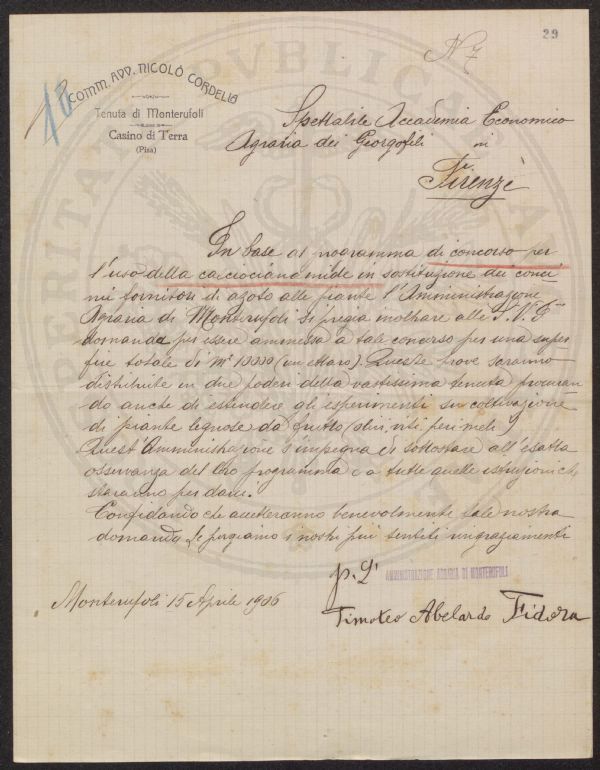 29
N 7
18
COMM. AVV. NICOLÒ CORDELLA
Tenuta di Monterufoli
Casino di Terra
(Pisa)
Spettabile Accademia Economico
Agraria dei Georgofili in
Firenze
In base al programma di concorso per
l'uso della calciocianamide in sostituzione dei conci
mi fornitori di azoto alle piante l'Amministrazione
Agraria di Monterufoli si pregia inoltrare alle S.V.
domanda per essere ammessa a tale concorso per una super
fice totale di m² 10000 (un ettaro). Queste prove saranno
distribuite in due poderi della vastissima tenuta procuran
do anche di estendere gli esperimenti su coltivazione
di piante legnose da frutto (olivi, viti peri meli)
Quest'Amministrazione s'impegna di sottostare all'esatta
osservanza del programma e a tutte quelle istruzioni che
staranno per darci.
Confidando che accetteranno benevolmente tale nostra
domanda, Le porgiamo i nostri più sentiti ringraziamenti
p. L' AMMINISTRAZIONE AGRARIA DI MONTERUFOLI
Monterufoli 15 Aprile 1906
Timoteo Abelardo Fidora